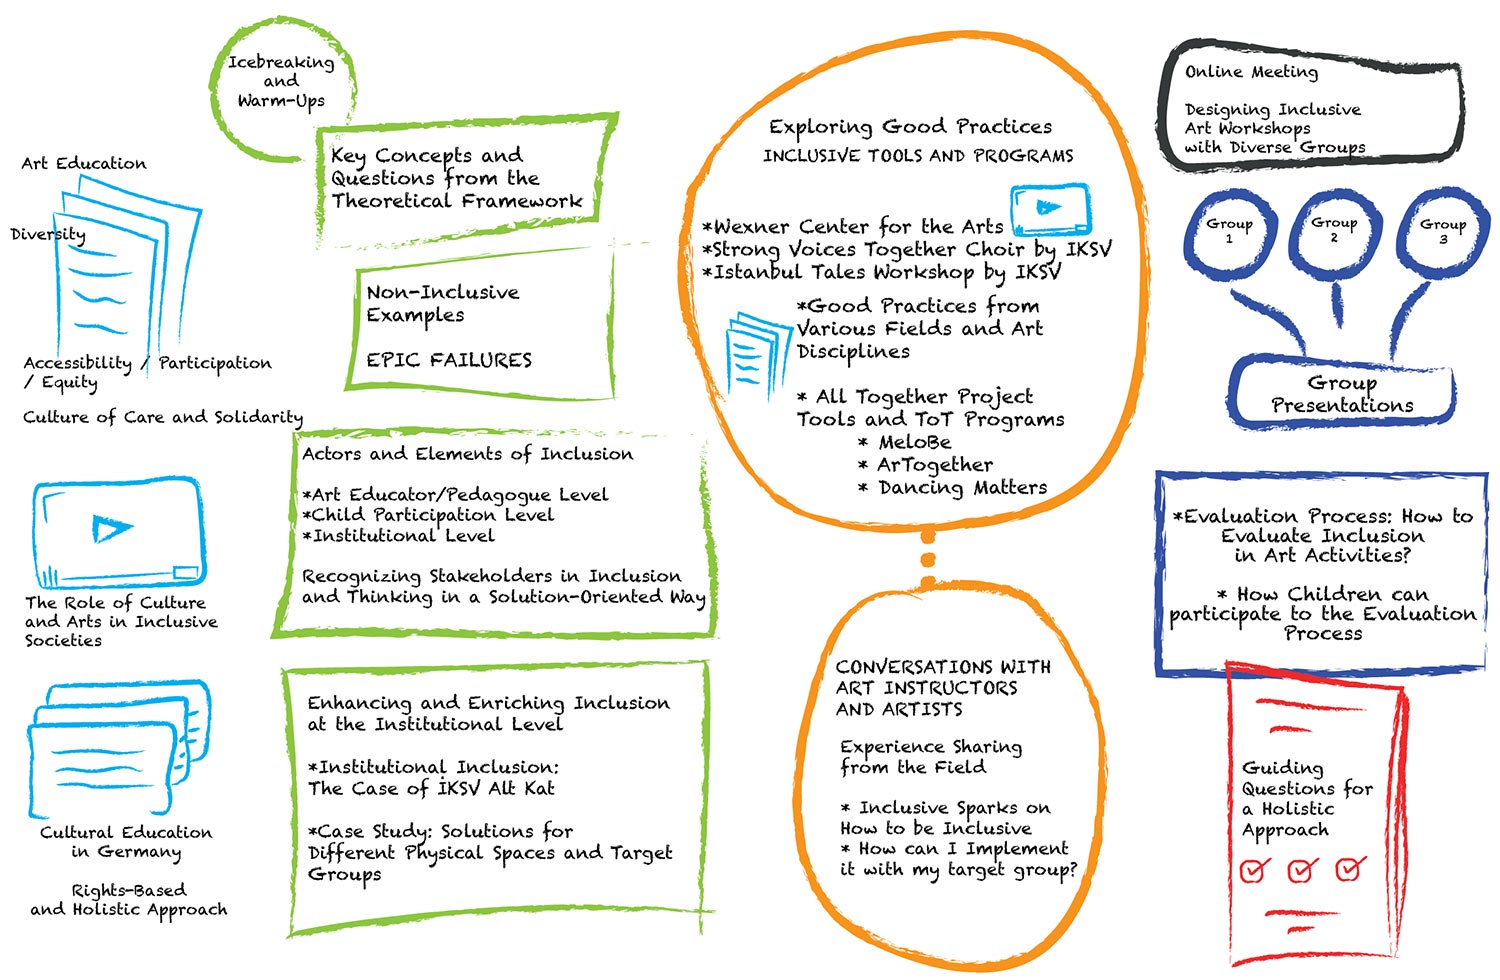 Art Education
Diversity
Accessibility / Participation
/ Equity
Culture of Care and Solidarity
The Role of Culture
and Arts in Inclusive
Societies
Cultural Education
in Germany
Rights-Based
and Holistic Approach
Icebreaking
and
Warm-Ups
Key Concepts and
Questions from the
Theoretical Framework
Non-Inclusive
Examples
EPIC FAILURES
Actors and Elements of Inclusion
*Art Educator/Pedagogue Level
*Child Participation Level
*Institutional Level
Recognizing Stakeholders in Inclusion
and Thinking in a Solution-Oriented Way
Enhancing and Enriching Inclusion
at the Institutional Level
*Institutional Inclusion:
The Case of İKSV Alt Kat
*Case Study: Solutions for
Different Physical Spaces and Target
Groups
Exploring Good Practices
INCLUSIVE TOOLS AND PROGRAMS
*Wexner Center for the Arts
*Strong Voices Together Choir by IKSV
*Istanbul Tales Workshop by IKSV
*Good Practices from
Various Fields and Art
Disciplines
* All Together Project
Tools and ToT Programs
* MeloBe
* ArTogether
* Dancing Matters
CONVERSATIONS WITH
ART INSTRUCTORS
AND ARTISTS
Experience Sharing
from the Field
* Inclusive Sparks on
How to be Inclusive
* How can I Implement
it with my target group?
Online Meeting
Designing Inclusive
Art Workshops
with Diverse Groups
Group
1
Group
2
Group
3
Group
Presentations
*Evaluation Process: How to
Evaluate Inclusion
in Art Activities?
* How Children can
participate to the Evaluation
Process
Guiding
Questions for
a Holistic
Approach